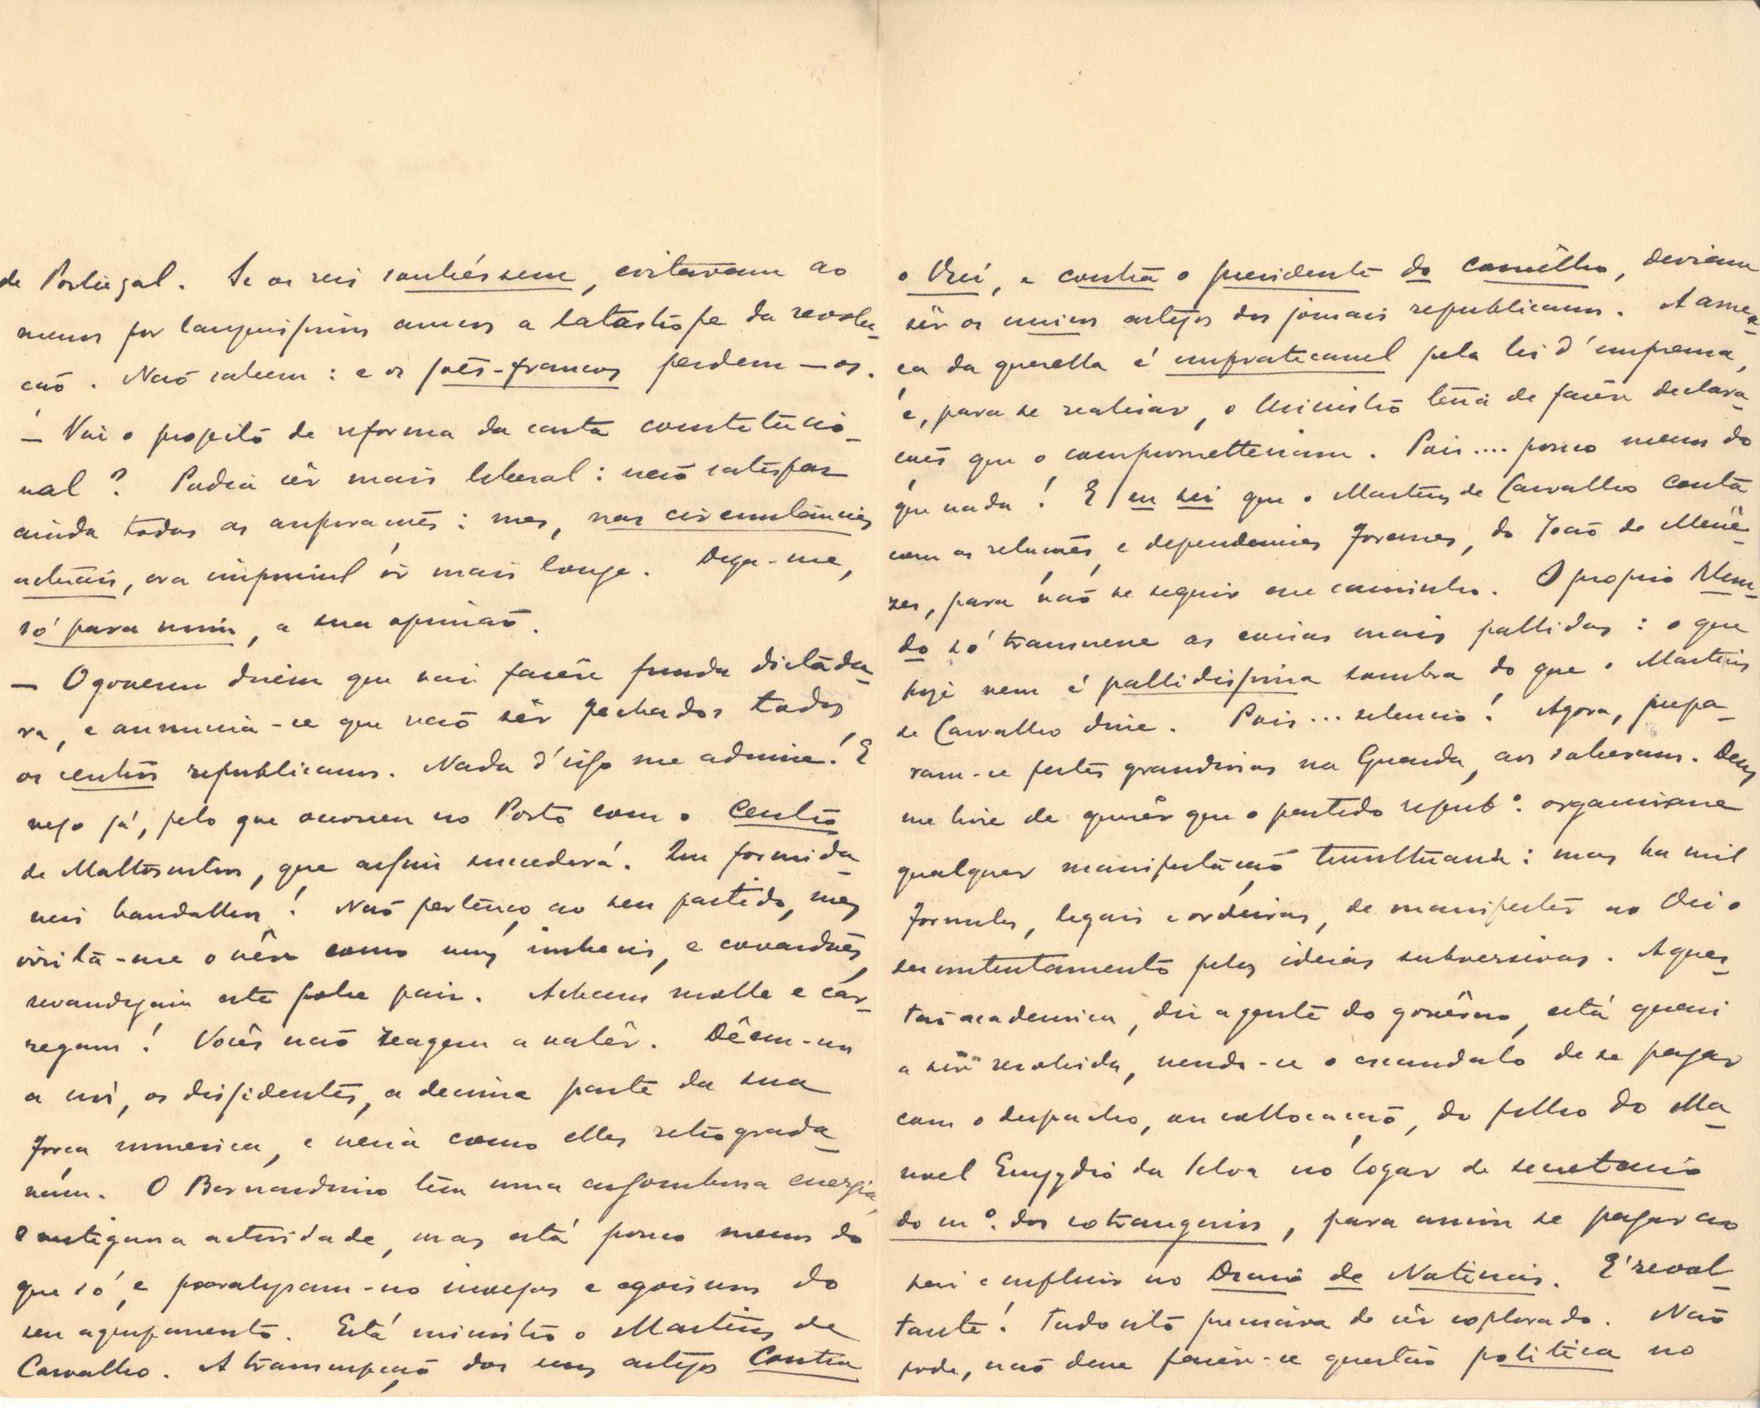 de Portugal. Se os reis soubéssem, evitavam ao
menos por larguissimos annos a catastrofe da revolu-
ção. Não sabem: e os joões-francos perdem-os.
— Vai o projeito de reforma da carta constitucio-
nal? Podia sêr mais liberal: não satisfaz
ainda todas as aspirações: mas, nas circumstancias
actuais, era impossivel ir mais longe. Diga-me,
só para mim, a sua opinião.
— O governo dizem que vai fazêr funda dictadu-
ra, e annuncia-se que vão sêr fechados todos
os centros republicanos. Nada d'isso me admira! E
vejo já, pelo que ocorreu no Porto com o Centro
de Mattosinhos, que assim sucederá. Que formida-
veis bandalhos! Não pertenço ao seu partido, mas
irrita-me o vêr como uns imbecis, e covardões,
sevandijam este pobre paiz. Acham molle e car-
regam! Vocês não reagem a valêr. Dêem-nos
a nós, os dissidentes, a decima parte da sua
força numerica, e veria como elles retrograda-
vam. O Bernardino tem uma assombrosa energia
e antiga actividade, mas está pouco menos do
que só, e paralysam-no invejas e egoismos do
seu agrupamento. Está ministro o Martins de
Carvalho. A transcripção dos seus artigos contra
o Rei, e contra o presidente do conselho, deviam
sêr os unicos artigos dos jornais republicanos. A amea-
ça da querella é impraticavel pela lei d'imprensa,
e, para se realisar, o Ministro teria de fazêr declara-
ções que o comprometteriam. Pois.... pouco menos do
que nada! E eu sei que o Martins de Carvalho conta
com as relações, e dependencias forenses, do João de Menê-
zes, para não se seguir esse caminho. O proprio Mun-
do só transcreve as coisas mais pallidas: o que
hoje vem é pallidissima sombra do que o Martins
de Carvalho disse. Pois... silencio! Agora, prepa-
ram-se festas grandiosas na Guarda, aos soberanos. Deus
me livre de querêr que o partido repubº. organisasse
qualquer manifestação tumultuaria: mas ha mil
formulas, legais e ordeiras, de manifestar ao Rei o
descontentamento pelas ideias subversivas. A ques-
tão academica, diz a gente do govêrno, está quasi
a sêr resolvida, vendo-se o escandalo de se pagar
com o despacho, ou collocação, do filho do Ma-
noel Emygdio da Silva no logar de secretario
do mº. dos extrangeiros, para assim se pagar ao
seu e influir no Diario de Noticias. E' revol-
tante! Tudo isto precisava de sêr explorado. Não
pode, não deve fazêr-se questão politica no